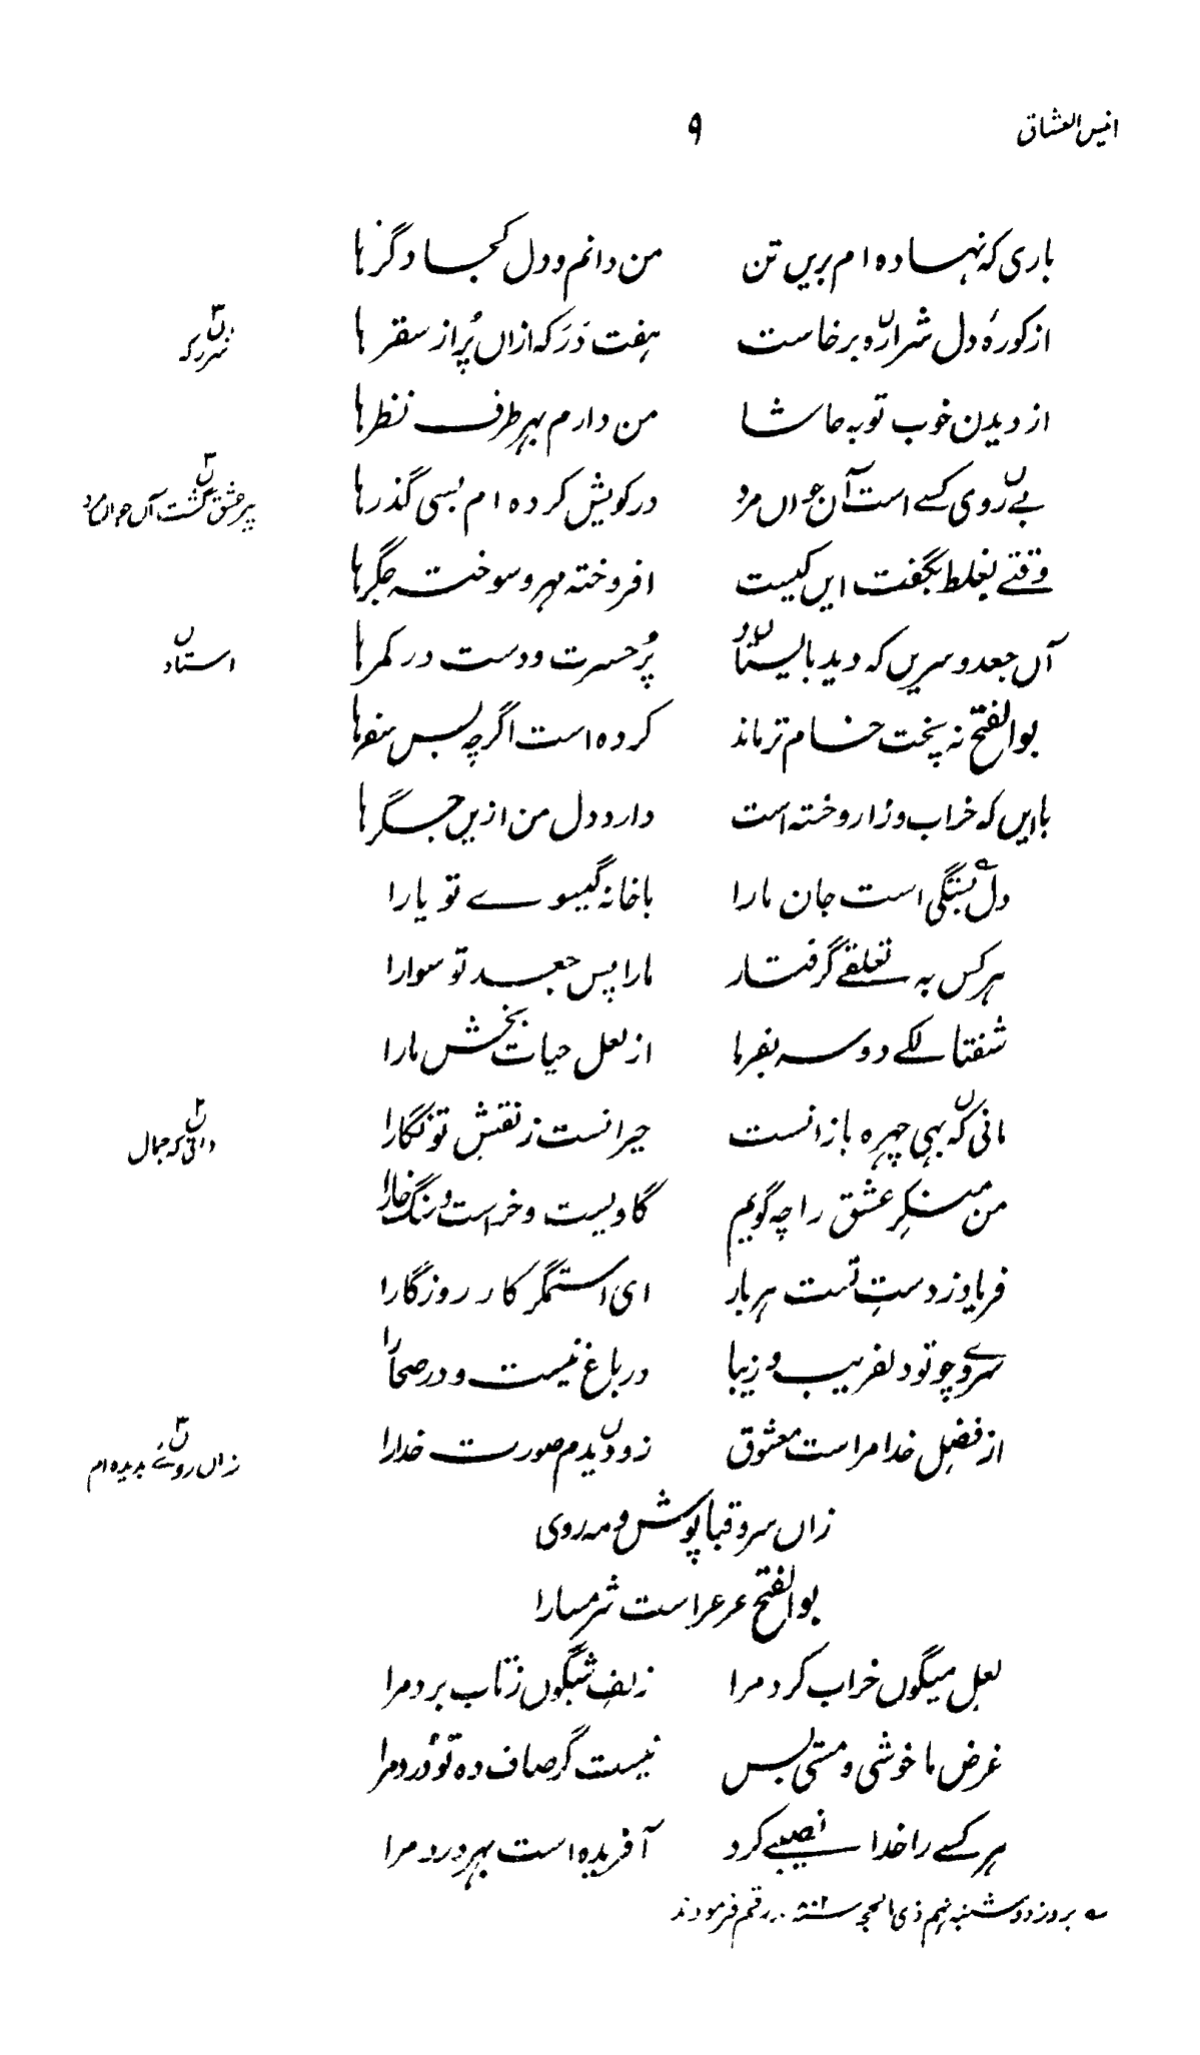 انیس العشاق ۹
باری که نهاده ام بریں تن من دانم و دل کجا دگرها
از کورهٔ دل شراره برخاست هفت دَرَکه ازاں پُر از سقرها
از دیدن خوب توبه حاشا من دارم بهر طرف نظرها
بے روی کسے است آن جواں مرد در کویش کرده ام بسی گذرها
پیر عشق گشت آں جواں مرد
وقتے بغلط بگفت ایں کیست افروخته مهر و سوخته جگرها
آں جعد و سریں که دید بالیستاد پُر حسرت و دست در کمرها
استاد
بوالفتح نه پخت خام تر ماند کرده است اگرچه بس سفرها
باایں که خراب و زار و خسته است دارد دل من ازیں جگرها
دل بستگی است جان ما را با خانه گیسوے تو یارا
هر کس به تعلقے گرفتار ما را پس جعد تو سوارا
شفتالکے دو سه بفرما از لعل حیات بخش مارا
مانی که بهی چهره بازانست حیرانست ز نقش تو نگارا
من منکرِ عشق را چه گویم گاویست و خر است و سنگ خارا
فریاد ز دستِ تست هر بار ای استمگر کار روزگارا
سروے چو تو دلفریب و زیبا در باغ نیست و در صحارا
از فضلِ خدا مراست معشوق زو دیدم صورت خدارا
زاں روئے بدیده ام
زاں سرو قباپوش و مه روی
بوالفتح عرعر است شرمسارا
لعلِ میگوں خراب کرد مرا زلفِ شبگوں ز تاب برد مرا
غرض ما خوشی و مستی بس نیست گر صاف ده تو دُرد مرا
هر کسے را خدا نصیبے کرد آفریده است بهر درد مرا
بروز دوشنبه نهم ذی الحجه سنه ۸۰۲ رقم فرمودند